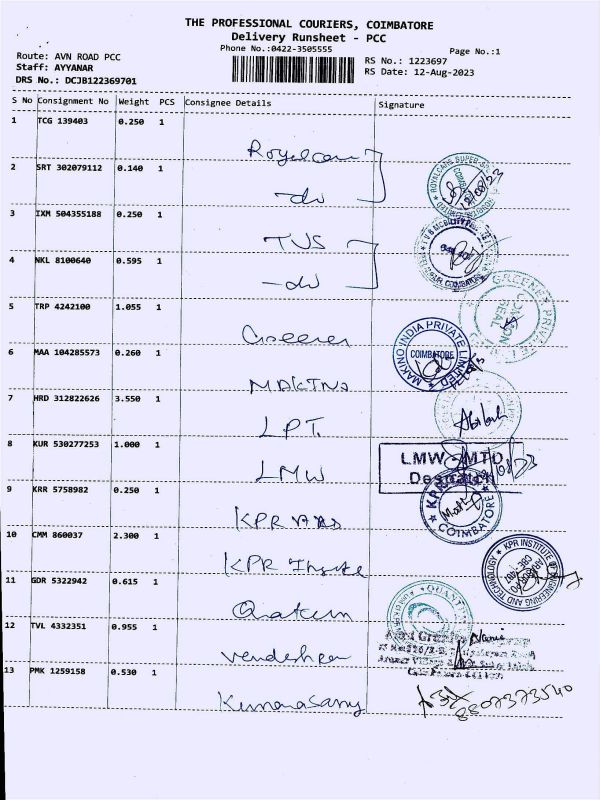 THE PROFESSIONAL COURIERS, COIMBATORE
Delivery Runsheet - PCC
Phone No.:0422-3505555
Page No.:1
Route: AVN ROAD PCC
Staff: AYYANAR
DRS No.: DCJB122369701
RS No.: 1223697
RS Date: 12-Aug-2023
S No Consignment No Weight PCS Consignee Details Signature
1 TCG 139403 0.250 1
Royalcare
2 SRT 302079112 0.140 1
-do
3 IXM 504355188 0.250 1
TVS
4 NKL 8100640 0.595 1
-do
5 TRP 4242100 1.055 1
6 MAA 104285573 0.260 1
MAKINO
MAKINO INDIA PRIVATE LIMITED
COIMBATORE
7 HRD 312822626 3.550 1
LPT
8 KUR 530277253 1.000 1
LMW
LMW-MTD
9 KRR 5758982 0.250 1
KPR
COIMBATORE
10 CMM 860037 2.300 1
KPR
KPR INSTITUTE OF ENGINEERING AND TECHNOLOGY
11 GDR 5322942 0.615 1
12 TVL 4332351 0.955 1
13 PMK 1259158 0.530 1
Kumarasamy
8807373540